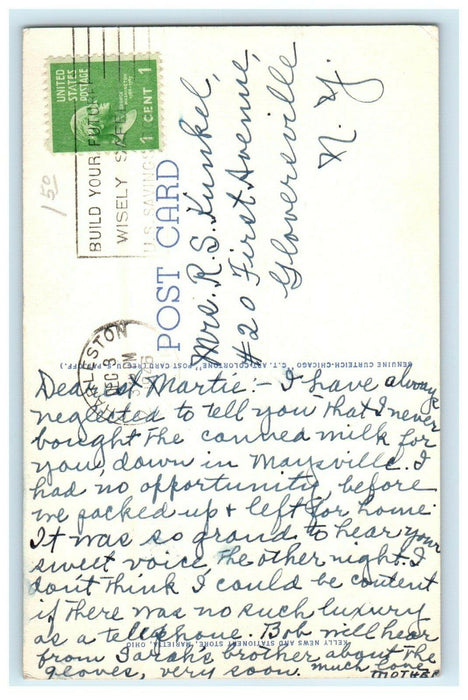 UNITED
STATES
POSTAGE
GEORGE
WASHINGTON
1789-1797
1 CENT 1
BUILD YOUR FUTURE
WISELY SAFELY
U.S. SAVINGS
1 50
POST CARD
Mrs. R. S. Kunkel,
#20 First Avenue,
Gloversville
N. Y.
CHARLESTON
DEC 8
PM
1946
GENUINE CURTEICH-CHICAGO "C.T. ART-COLORTONE" POST CARD (REG. U.S. PAT. OFF.)
Dearest Martie:- I have always
neglected to tell you that I never
bought the canned milk for
you, down in Maysville. I
had no opportunity before
we packed up & left for home.
It was so grand to hear your
sweet voice, the other night. I
don't think I could be content
if there was no such luxury
as a telephone. Bob will hear
from Sarah's brother about the
gloves, very soon. much love
MOTHER
KELLY NEWS AND STATIONERY STORE, MARIETTA, OHIO